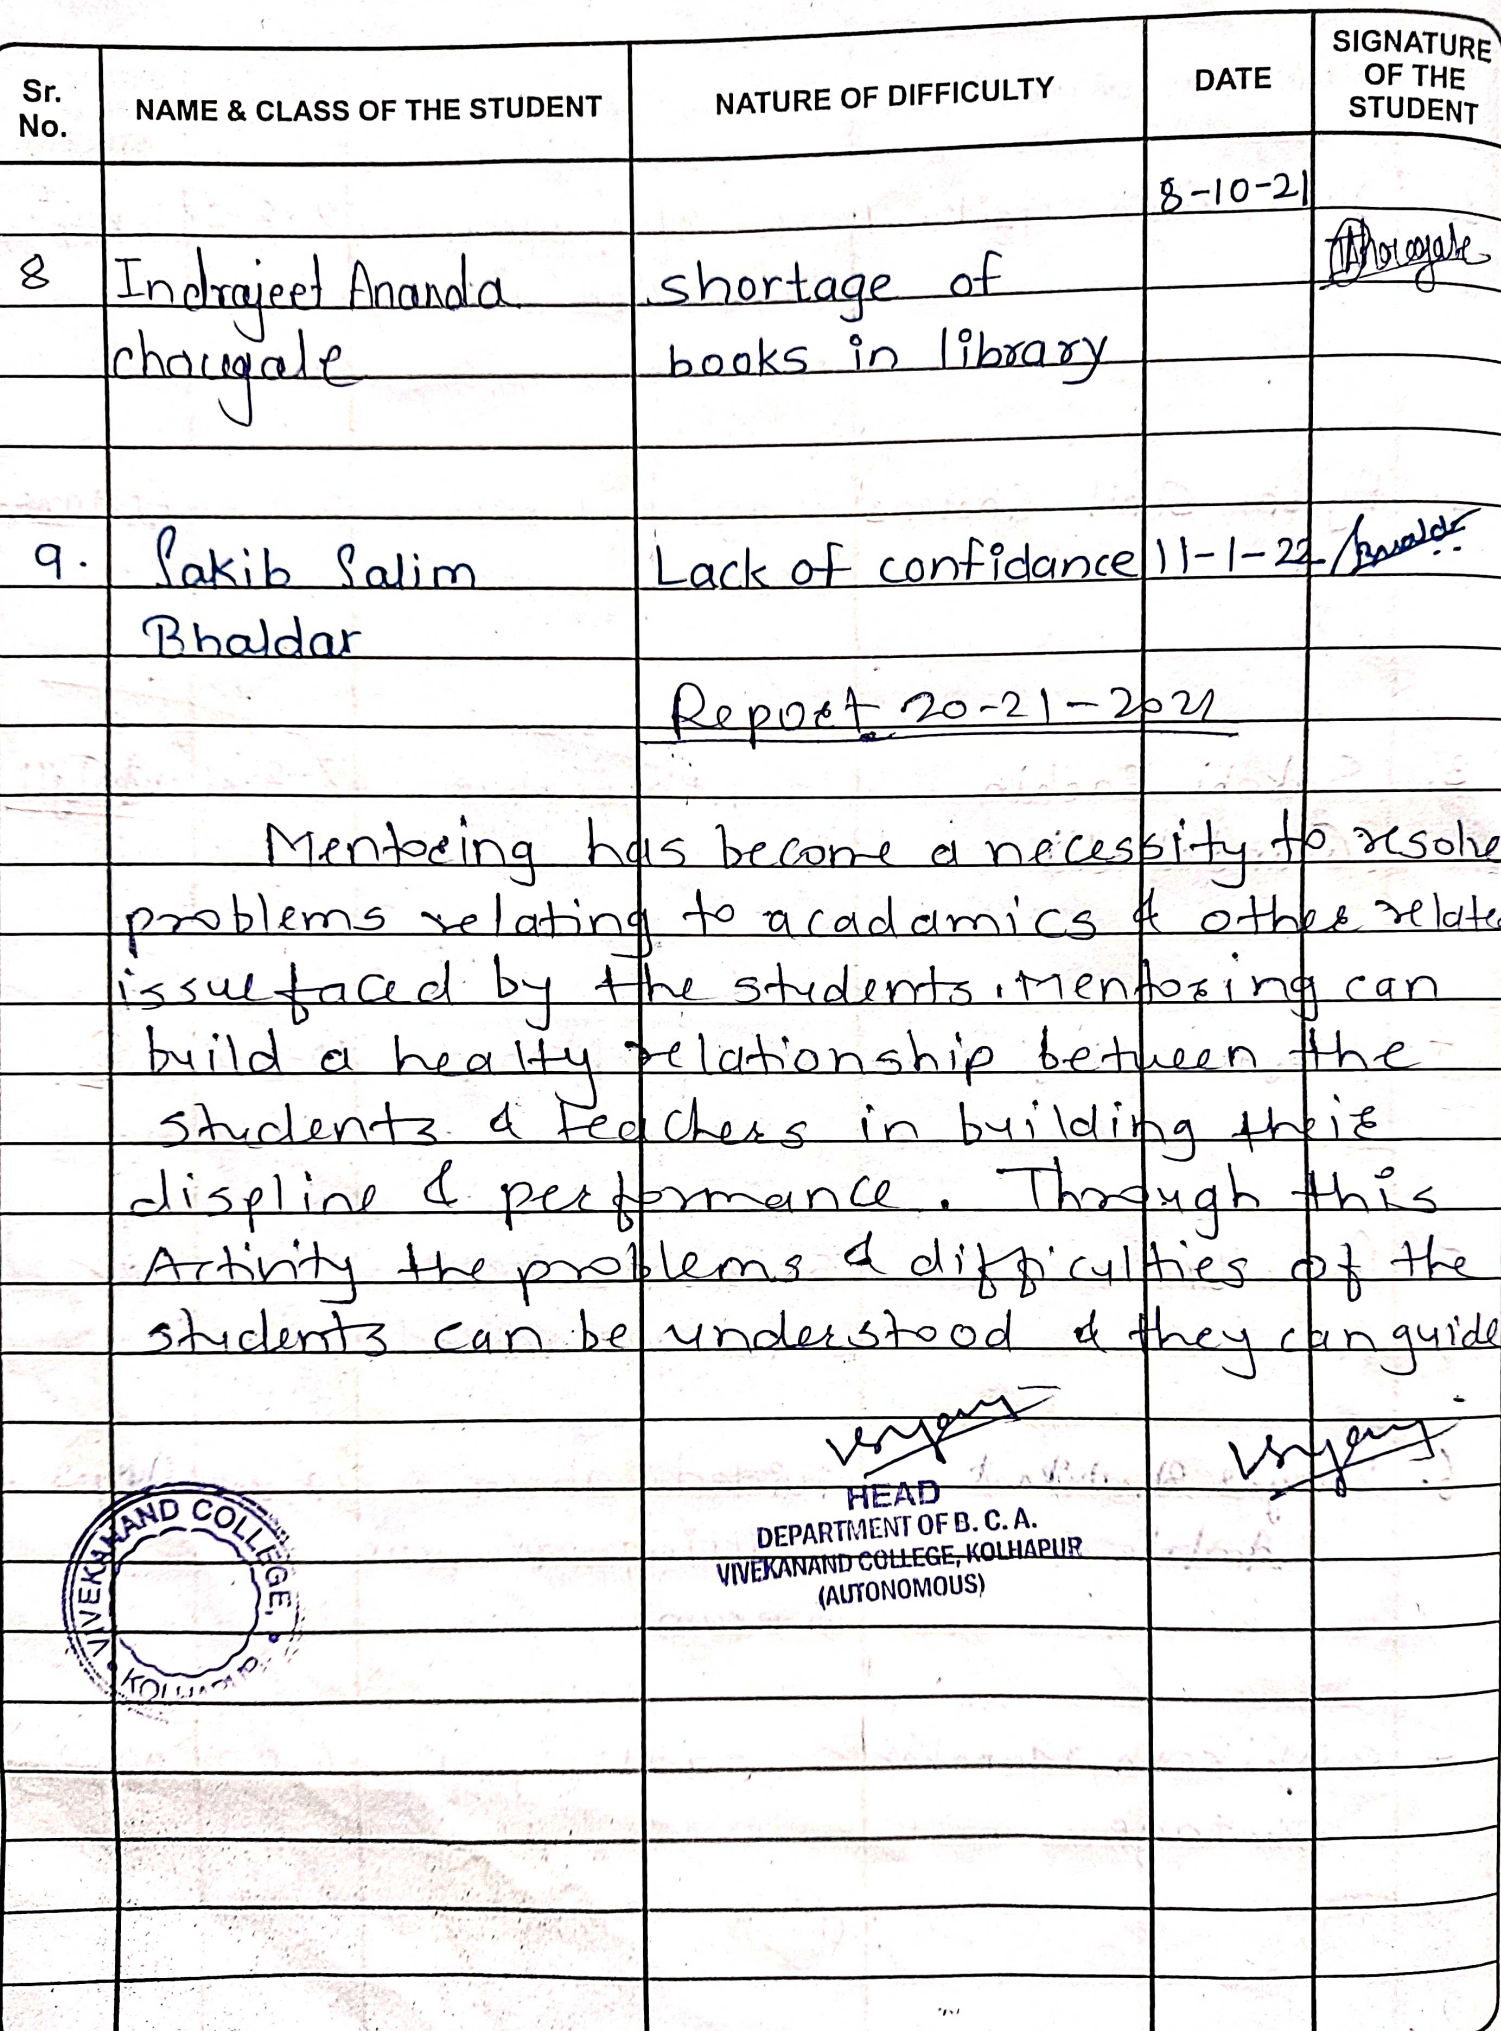 Sr. No. NAME & CLASS OF THE STUDENT NATURE OF DIFFICULTY DATE SIGNATURE OF THE STUDENT
8-10-21
8 Indrajeet Ananda shortage of
chougale books in library
9. Sakib Salim Lack of confidance 11-1-22
Bhaldar
Report 20-21-2021
Mentoring has become a necessity to resolve
problems relating to acadamics & other relate
issue faced by the students. Mentoring can
build a healty relationship between the
students & teachers in building their
displine & performance. Through this
Activity the problems & difficulties of the
students can be understood & they can guide
HEAD
DEPARTMENT OF B. C. A.
VIVEKANAND COLLEGE, KOLHAPUR
(AUTONOMOUS)
VIVEKANAND COLLEGE,